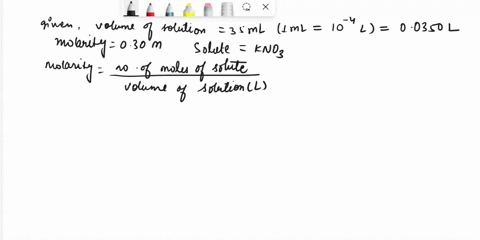 given, volume of solution = 35mL (1mL = 10⁻⁴ L) = 0.0350 L
molarity = 0.30 m Solute = KNO₃
molarity = no. of moles of solute / volume of solution (L)